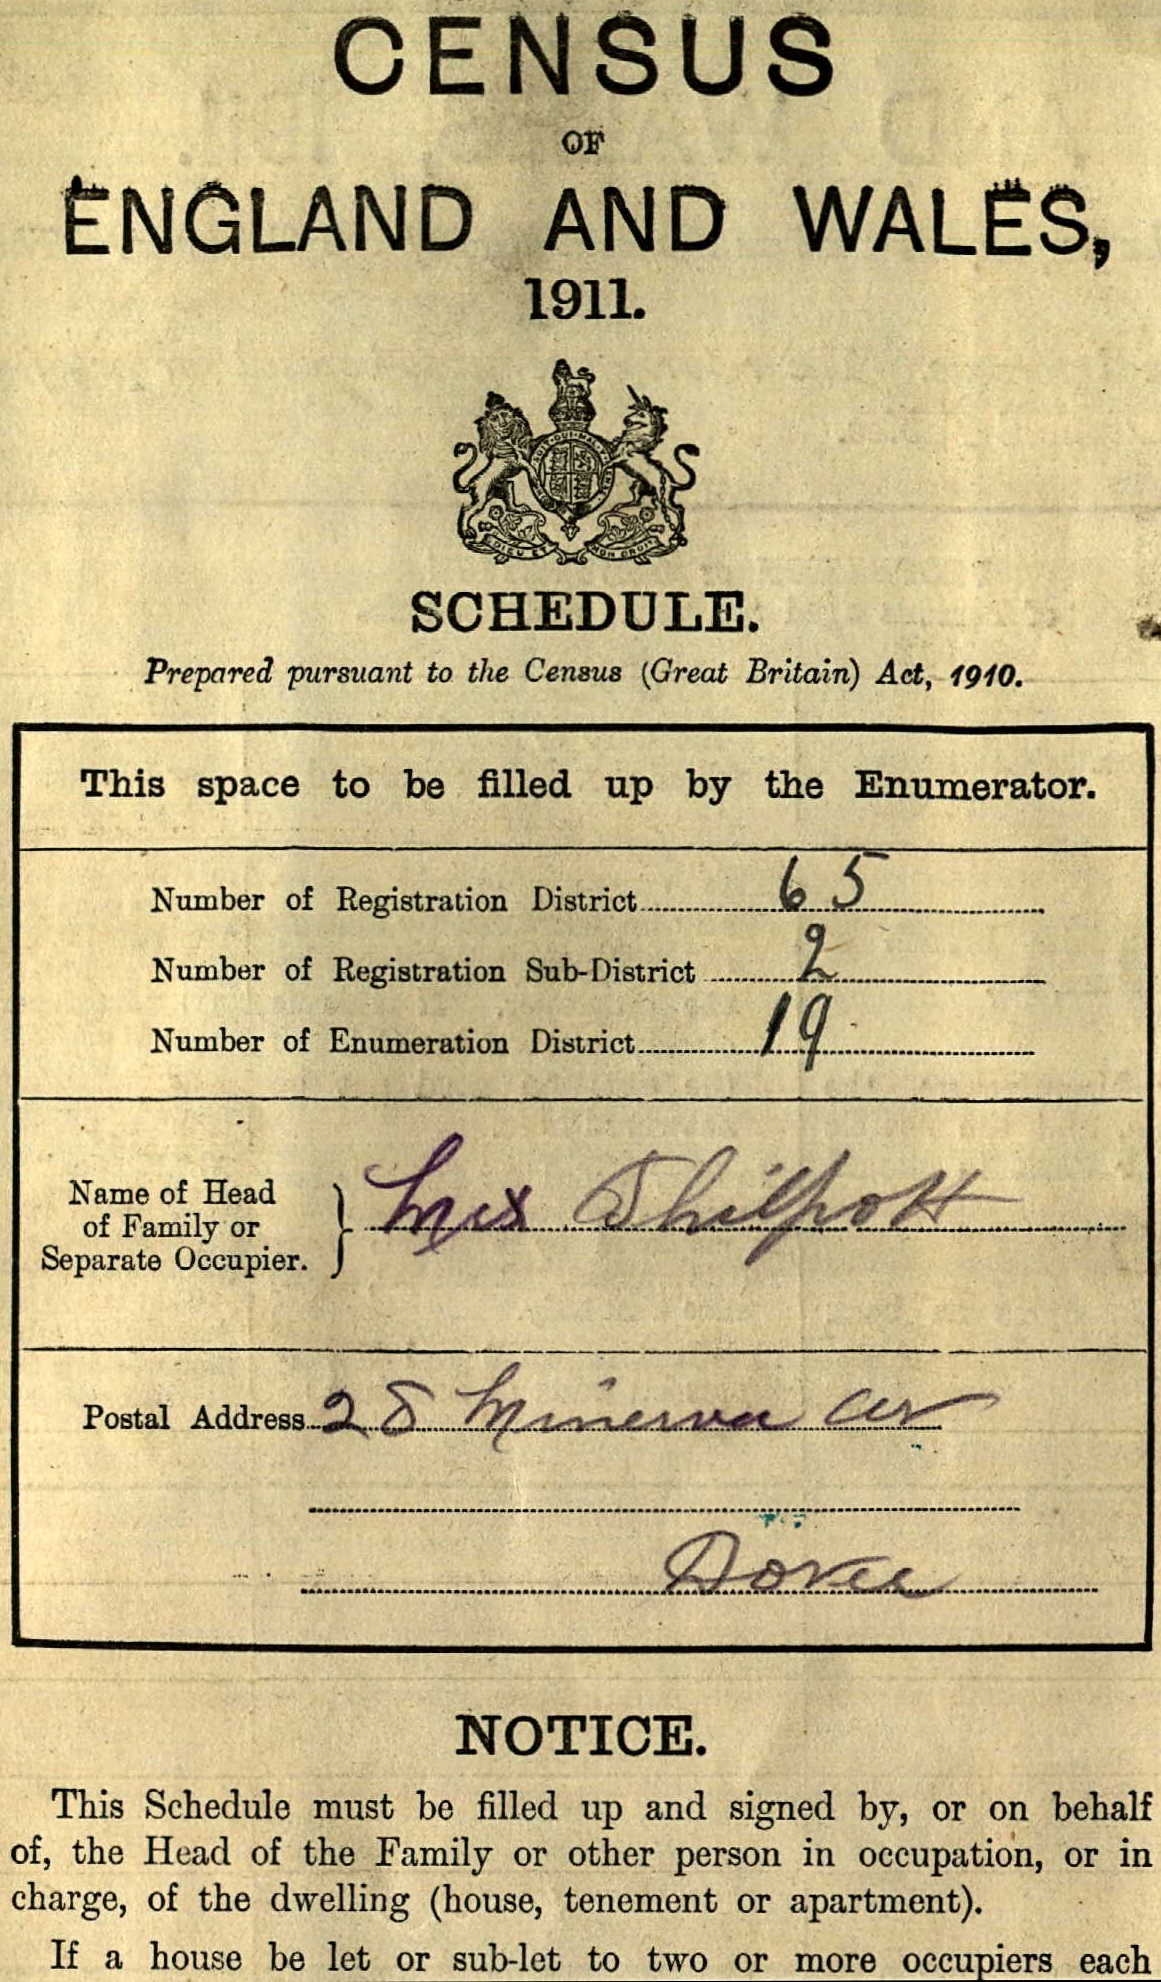 CENSUS
OF
ENGLAND AND WALES,
1911.
DIEU ET MON DROIT
SCHEDULE.
Prepared pursuant to the Census (Great Britain) Act, 1910.
This space to be filled up by the Enumerator.
Number of Registration District 65
Number of Registration Sub-District 2
Number of Enumeration District 19
Name of Head
of Family or
Separate Occupier. } Mrs Philpott
Postal Address 28 Minerva Av
Dover
NOTICE.
This Schedule must be filled up and signed by, or on behalf
of, the Head of the Family or other person in occupation, or in
charge, of the dwelling (house, tenement or apartment).
If a house be let or sub-let to two or more occupiers each